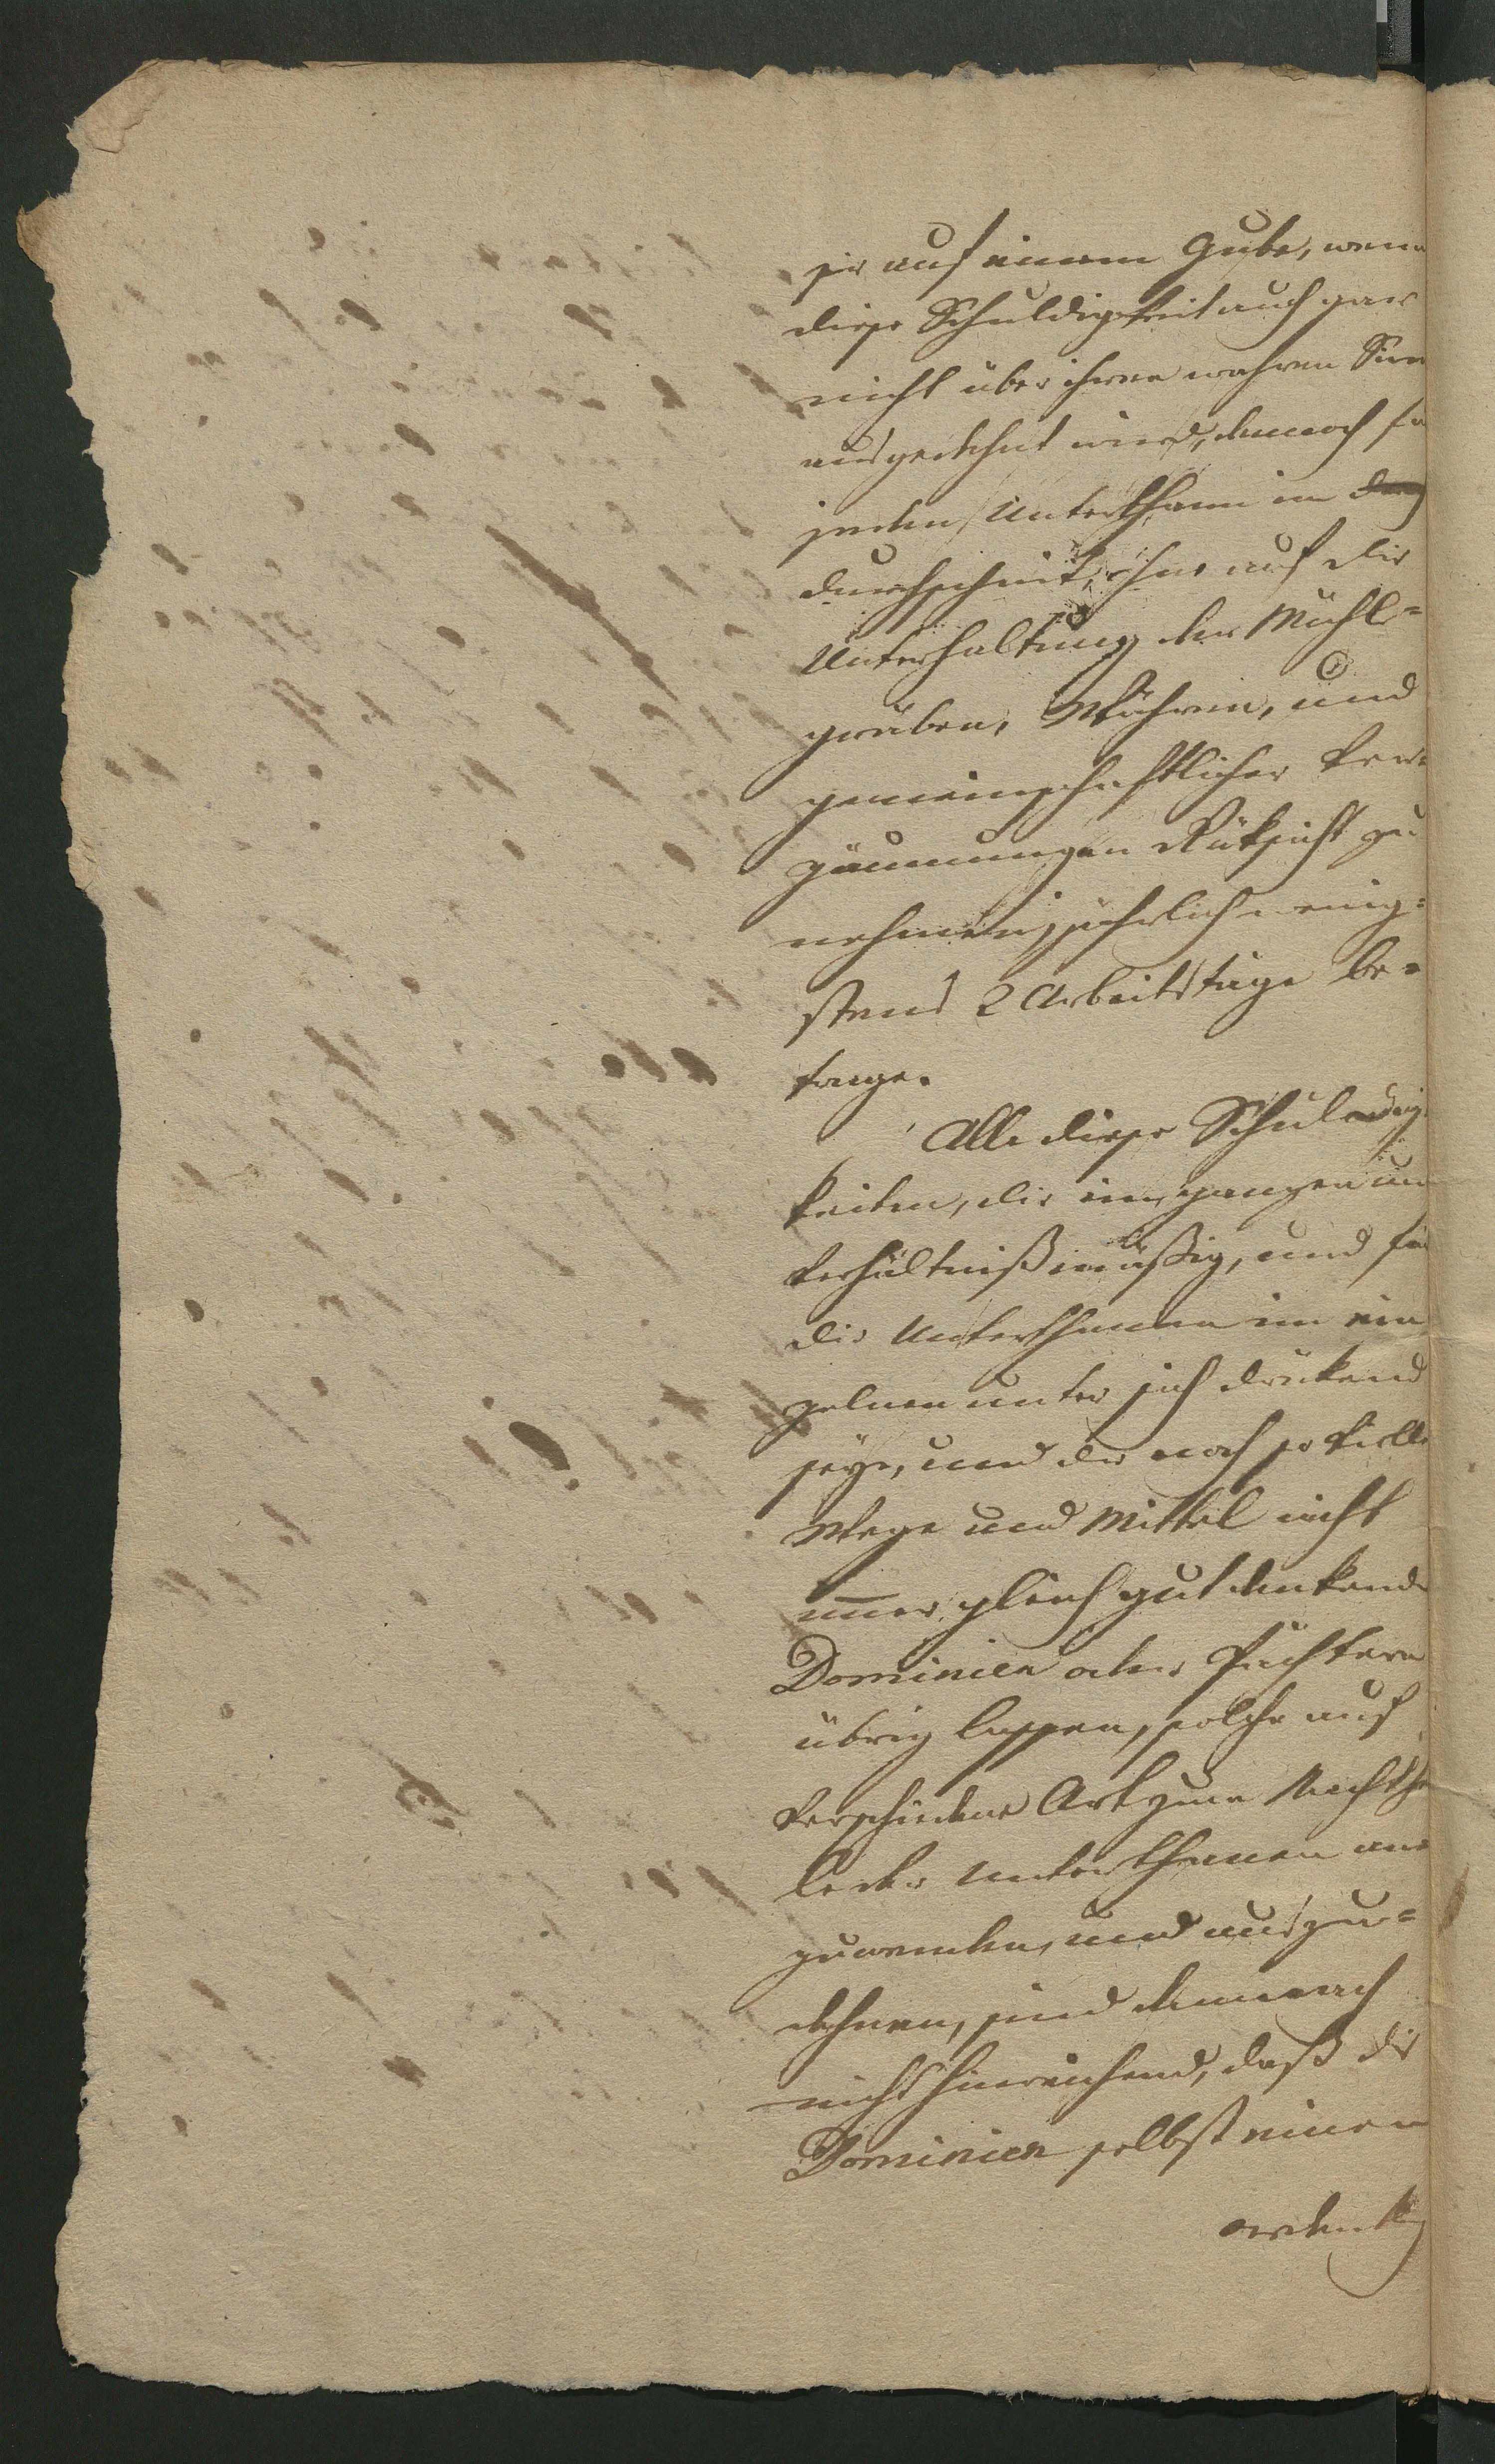 sie auf einem Gute, wenn
diese Schuldigkeit auch gar
nicht über ihren wahren Sinn
ausgedehnt wird, dennoch fü
jeden Unterthann im
durchschnit, ohne auf die
Unterhaltung der Mühl=
gräben, Wühren, und
gemeinschaftlicher Ver=
zäunungen Rüksicht zu
nehmen, jährlich wenig=
stens 2 Arbeitstäge be=
trage.
Alle diese Schuldig
keiten, die im ganzen un
verhältnißmäßig, und für
die Unterthanen im ein
zelnen unter sich drükend
seye, und die noch so vielle
Wege und Mittel nicht
immer gleich gut denkende
Dominien oder Pächtern
übrig lassen, solche auf
verschiedene Art zum Nachthe
le der Unterthanen an
zuwenden, und auszu=
dehnen, sind dennoch
nicht hinreichend, daß die
Dominien selbst einen
ordentl